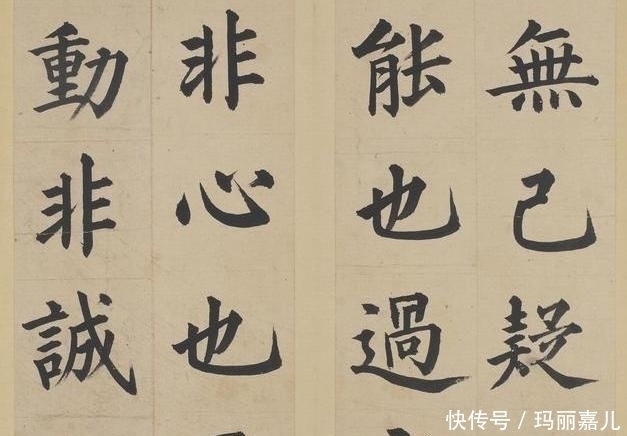 無己疑
能也過
非心也
動非誠
快传号 / 玛丽嘉儿